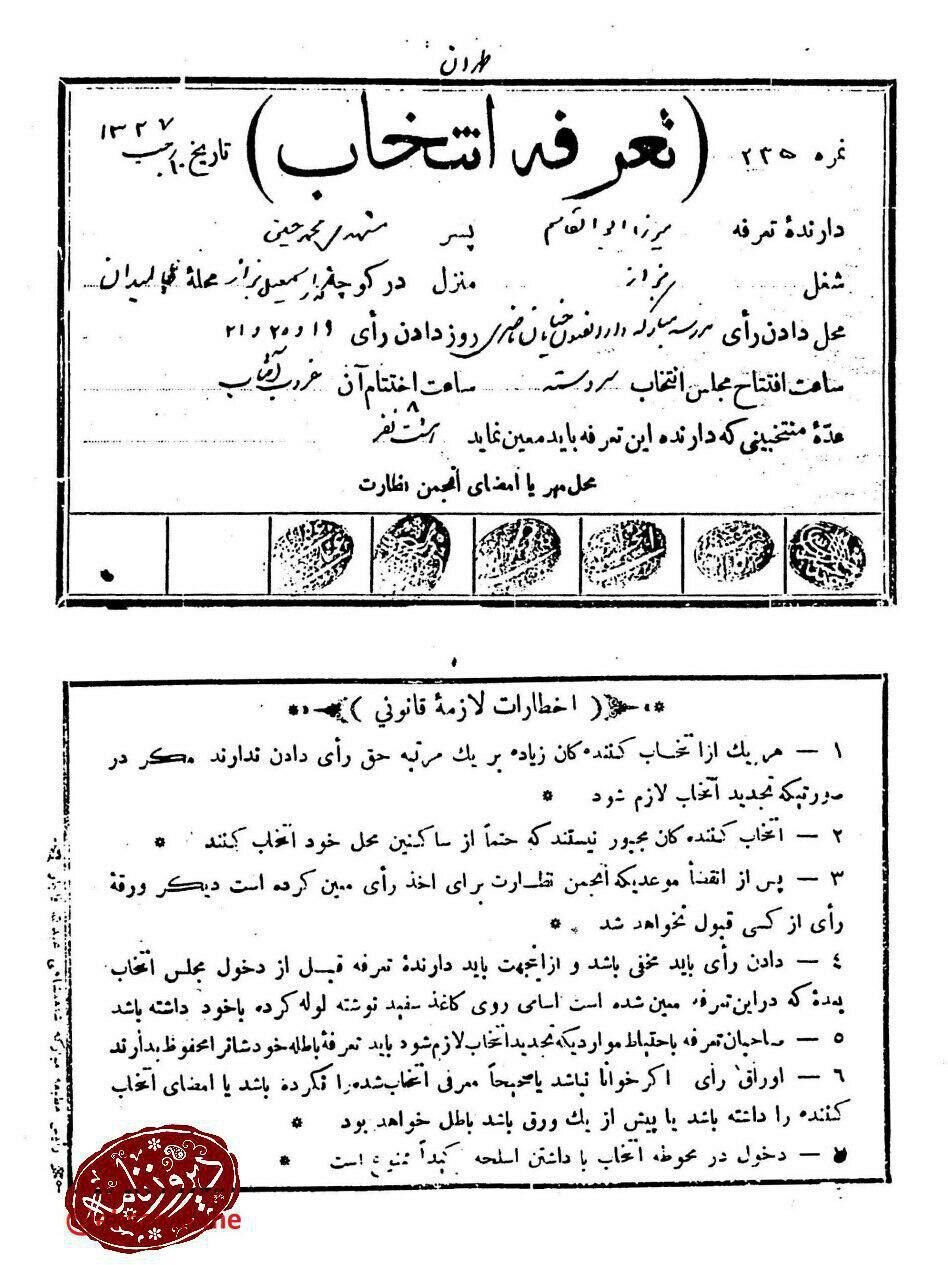 طهران
نمره ۲۳۵ (تعرفه انتخاب) تاریخ ۱۰ رجب ۱۳۲۷
دارندهٔ تعرفه میرزا ابوالقاسم پسر مشهدی محمد حسین
شغل بزاز منزل در کوچهٔ اسمعیل بزاز محلهٔ میدان
محل دادن رأی مدرسه مبارکه دارالفنون خیابان ناصری روز دادن رأی ۱۹ و ۲۰ و ۲۱
ساعت افتتاح مجلس انتخاب سر دسته ساعت اختتام آن غروب آفتاب
عدّهٔ منتخبینی که دارنده این تعرفه باید معین نماید هشت نفر ۸
محل مهر یا امضای انجمن نظارت
( اخطارات لازمهٔ قانونی )
۱ — هر یك از انتخاب کننده کان زیاده بر یك مرتبه حق رأی دادن ندارند مکر در
صورتیکه تجدید انتخاب لازم شود *
۲ — انتخاب کننده کان مجبور نیستند که حتماً از ساکنین محل خود انتخاب کنند *
۳ — پس از انقضأ موعدیکه انجمن نظارت برای اخذ رأی معین کرده است دیکر ورقهٔ
رأی از کسی قبول نخواهد شد *
٤ — دادن رأی باید مخفی باشد و ازاینجهت باید دارندهٔ تعرفه قبل از دخول مجلس انتخاب
بعدهٔ که دراین تعرفه معین شده است اسامی روی کاغذ سفید نوشته لوله کرده باخود داشته باشد
٥ — صاحبان تعرفه باحتیاط مواردیکه تجدید انتخاب لازم شود باید تعرفهٔ باطله خودشانرا محفوظ بدارند
٦ — اوراق رأی اکر خوانا نباشد یا صحیحاً معرفی انتخاب شده را نکرده باشد یا امضای انتخاب
کننده را داشته باشد یا بیش از یك ورق باشد باطل خواهد بود *
۷ — دخول در محوطه انتخاب با داشتن اسلحه اکیداً ممنوع است *
دیروزنامه